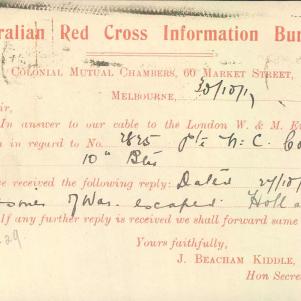 ralian Red Cross Information Bu
COLONIAL MUTUAL CHAMBERS, 60 MARKET STREET,
MELBOURNE, 30/10/17
ir,
In answer to our cable to the London W. & M.
n in regard to No. 2825 Pte N. C. Co
10th Btn
ve received the following reply: Dated 27/10/
soner of War. escaped. Holla
If any further reply is received we shall forward same
29.
Yours faithfully,
J. BEACHAM KIDDLE,
Hon Secre